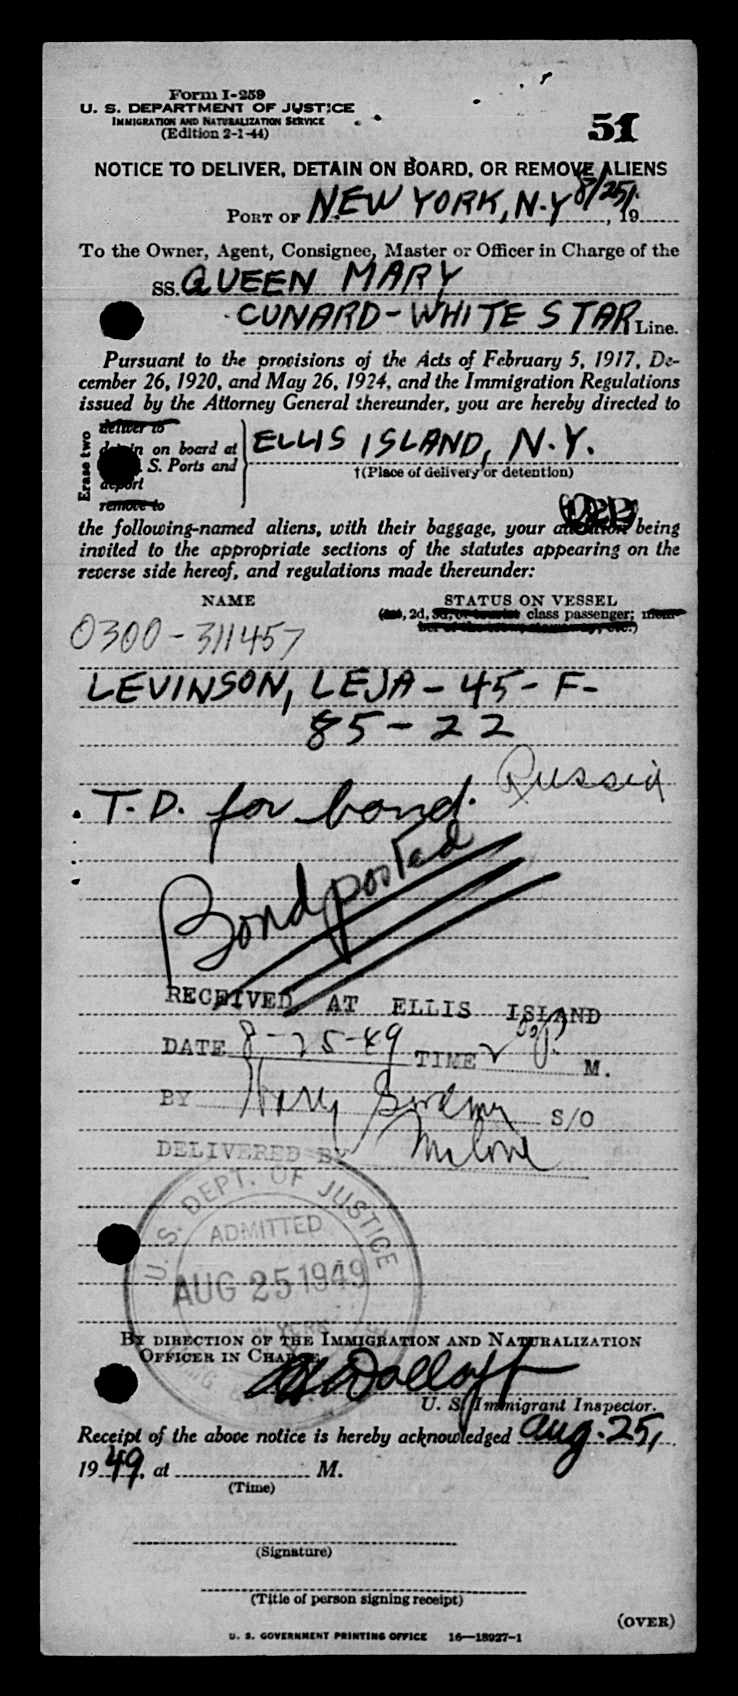 Form I-259
U. S. DEPARTMENT OF JUSTICE
IMMIGRATION AND NATURALIZATION SERVICE
(Edition 2-1-44)
51
NOTICE TO DELIVER, DETAIN ON BOARD, OR REMOVE ALIENS
PORT OF NEW YORK, N.Y 8/25/, 19
To the Owner, Agent, Consignee, Master or Officer in Charge of the
SS. QUEEN MARY
CUNARD-WHITE STAR Line.
Pursuant to the provisions of the Acts of February 5, 1917, De-
cember 26, 1920, and May 26, 1924, and the Immigration Regulations
issued by the Attorney General thereunder, you are hereby directed to
Erase two
deliver to
on board at
S. Ports and
remove to
ELLIS ISLAND, N.Y.
†(Place of delivery or detention)
the following-named aliens, with their baggage, your attention being
invited to the appropriate sections of the statutes appearing on the
reverse side hereof, and regulations made thereunder:
NAME
STATUS ON VESSEL
(1st, 2d, 3d, or tourist class passenger; mem-
ber of the crew, etc.)
0300-311457
LEVINSON, LEJA - 45 - F -
85-22
Russia
T.D. for bond.
Bond posted
RECEIVED AT ELLIS ISLAND
DATE 8-25-49 TIME M.
BY Harry S/O
DELIVERED BY
U. S. DEPT. OF JUSTICE
ADMITTED
AUG 25 1949
BY DIRECTION OF THE IMMIGRATION AND NATURALIZATION
OFFICER IN CHARGE
U. S. Immigrant Inspector.
Receipt of the above notice is hereby acknowledged Aug. 25,
1949, at M.
(Time)
(Signature)
(Title of person signing receipt)
(OVER)
U. S. GOVERNMENT PRINTING OFFICE 16—18927-1